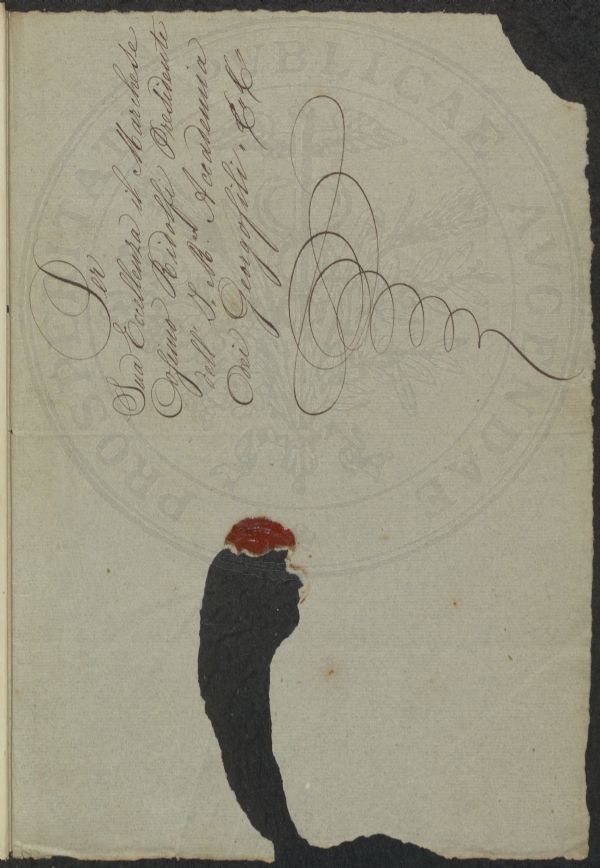 Per
Sua Eccellenza il Marchese
Cosimo Ridolfi Presidente
dell' I. R. Accademia
dei Georgofili. &c &c
PROSPERITATI PUBLICAE AUGENDAE